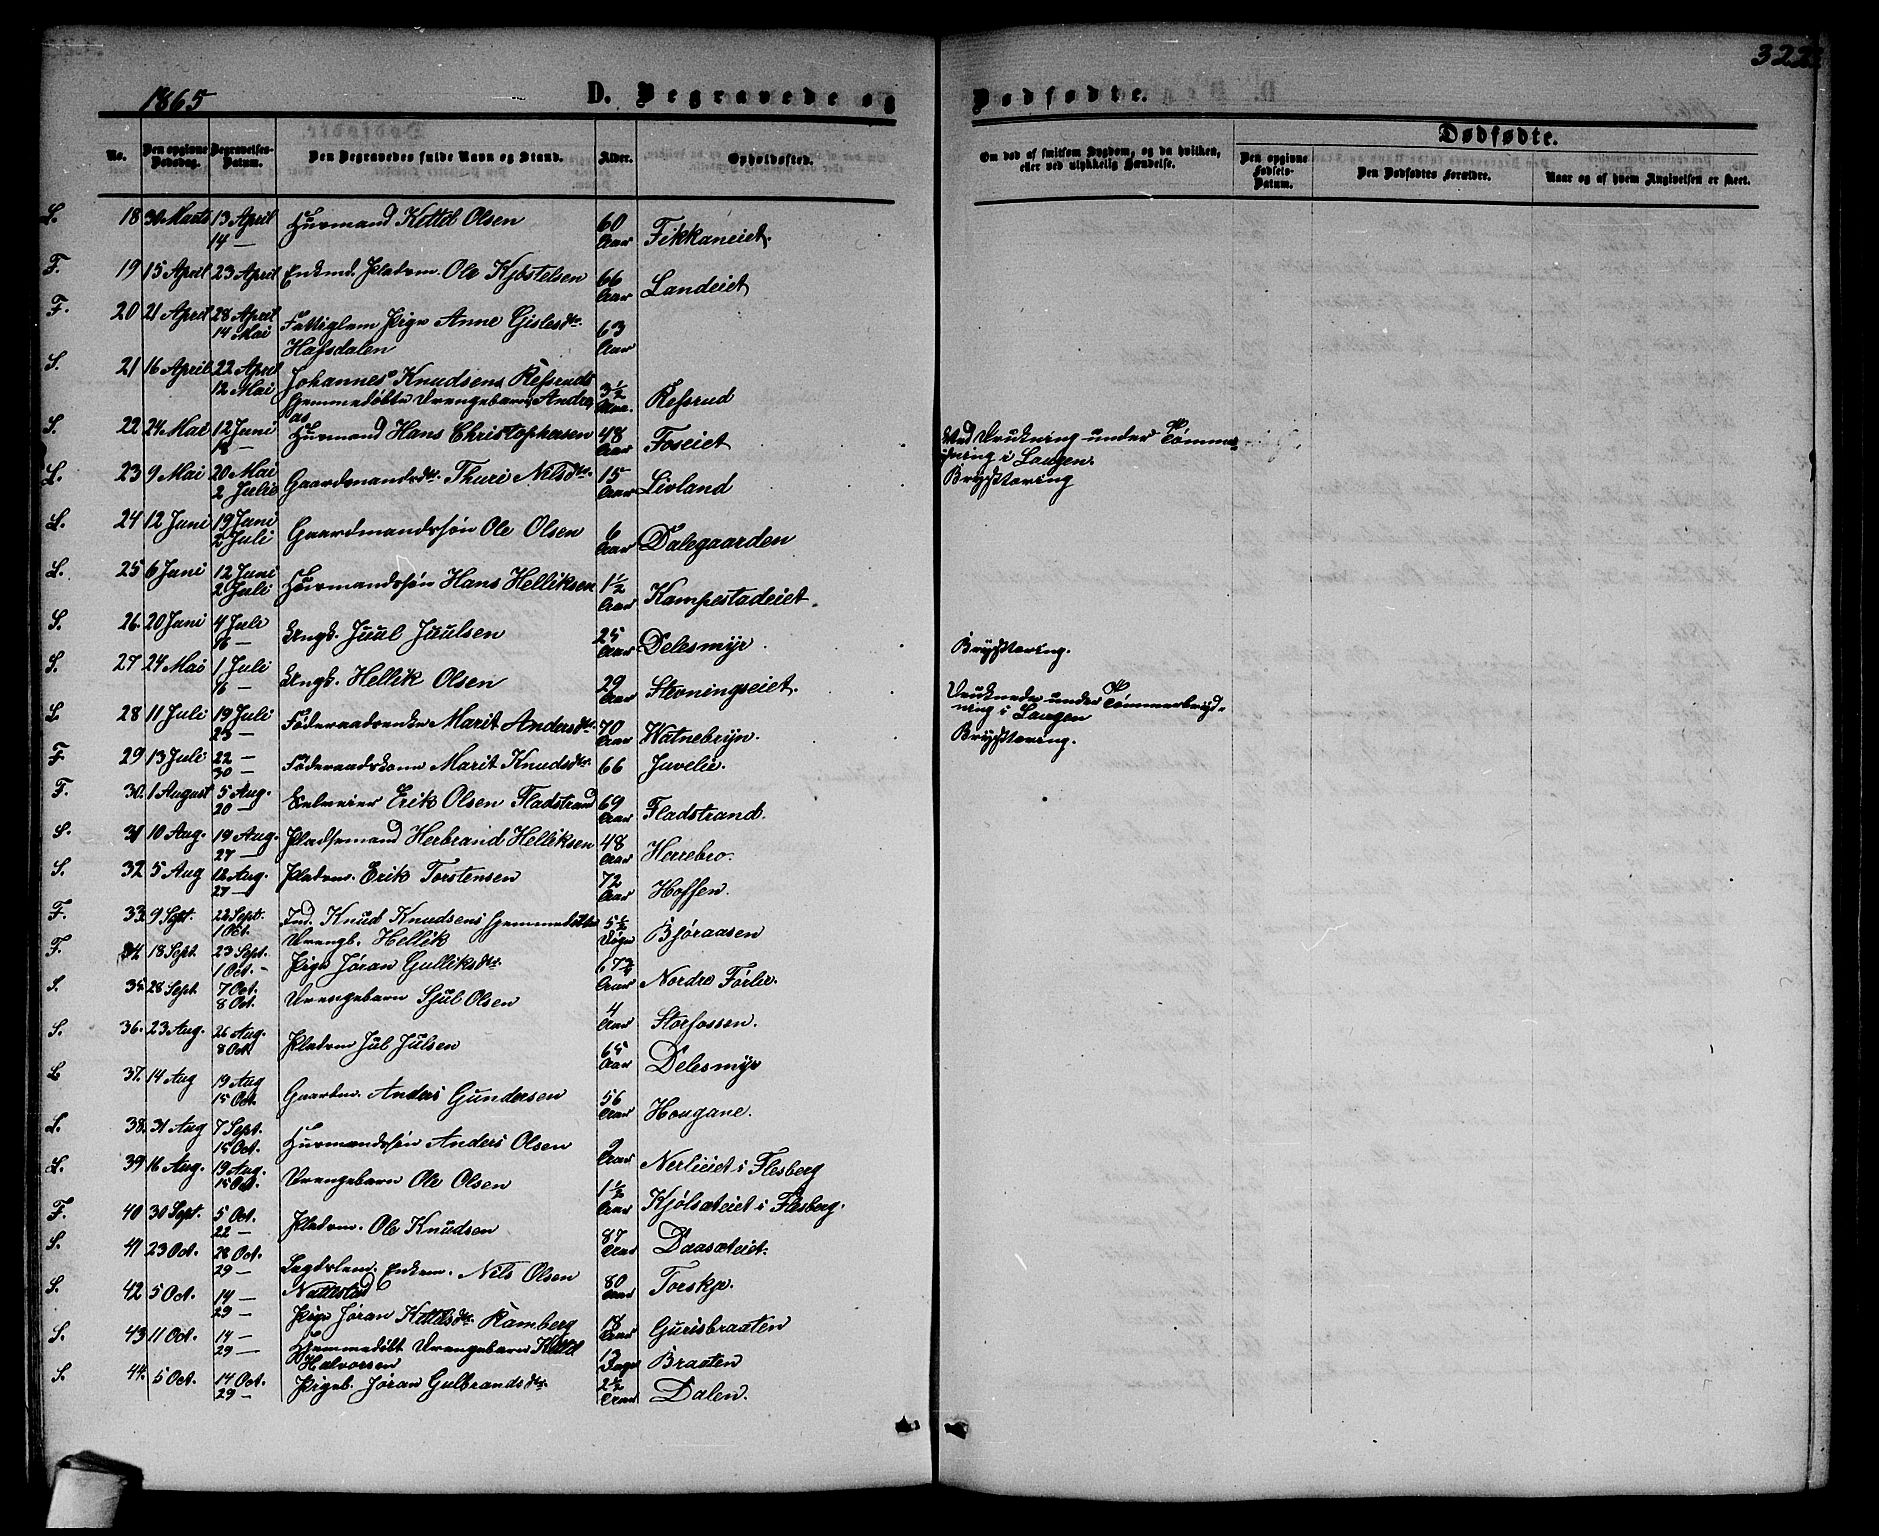 322
1865
D. Begravede og Dødfødte.
Dødfødte.
No. Den opgivne Dødsdag. Begravelses-Datum. Den Begravedes fulde Navn og Stand. Alder. Opholdssted. Om død af smitsom Sygdom, og da hvilken, eller ved ulykkelig Hændelse. Den opgivne Fødsels-Datum. Den Dødfødtes Forældre. Naar og af hvem Angivelsen er skeet.
S. 18 30 Marts 13 April Huusmand Kittel Olsen 60
14 — Aar Fikkaneiet.
F. 19 15 April 23 April Enkmd. Pladsm. Ole Kjöstelsen 66
Aar Landeiet
F. 20 21 April 28 April
14 Mai Fattiglem Pige Anne Gislesdtr. 63
Hafsdalen Aar
S. 21 16 April 22 April
12 Mai Johannes Knudsens Refsruds 3½
Hjemmedøbte Drengebarn Andre Refsrud
as
S. 22 24 Mai 12 Juni Huusmand Hans Christophersen 48 Ved Drukning under Tømmer
18 — Aar Foseiet i Laagen.
L. 23 9 Mai 20 Mai Gaardmandsdtr. Thuri Nilsdtr. 15 Brystbetændelse
2 Julie Aar Livland
L. 24 12 Juni 19 Juni
2 Juli Gaardmandssøn Ole Olsen 6
Aar Dalegaarden
L. 25 6 Juni 12 Juni
2 Juli Huusmandssøn Hans Helliksen 1½
Aar Kampestadeiet.
S. 26. 20 Juni 4 Juli
16 — Ungk. Juul Juulsen 25
Aar Delesmyr.
S. 27 24 Mai 1 Juli
16 — Ungk. Hellik Olsen 29 Druknede under Tømmer
Aar Stevningseiet. i Laagen
L 28 11 Juli 19 Juli
23 — Föderaadsenke Marit Andersdtr. 70
Aar Watnebryn.
F 29 13 Juli 22 —
30 — Föderaadskone Marit Knudsdtr. 66 Juvelie.
F. 30. 1 August 5 Aug.
20 — Selveier Erik Olsen Fladstrand 69
Aar Fladstrand.
S. 31 10 Aug. 19 Aug.
27 — Pladsemand Herbrand Helliksen 48
Aar Herrebro.
S. 32 5 Aug 12 Aug.
27 — Pladsm. Erik Torstensen 72
Aar Hoffen.
F. 33. 9 Sept. 22 Sept.
1 Oct. Ind. Knud Knudsens hjemmedøbte 5½
Drengb. Hellik Uger Bjøraasen
F. 34 18 Sept. 23 Sept.
1 Oct. - Pige Jøran Gulliksdtr. 67¾
Aar Nordre Førlie.
S. 35. 28 Sept. 7 Oct.
8 Oct. Drengebarn Sjul Olsen 4
Aar Storfossen.
S. 36. 23 Aug. 26 Aug.
8 Oct. Pladsm Jul Julsen 65
Aar Delesmyr
L 37. 14 Aug 19 Aug
15 Oct. Gaardm. Anders Gundersen 56
Aar Hougane.
L. 38. 31 Aug 7 Sept.
15 Oct. Huusmandssøn Anders Olsen 9
Aar Nerlieiet i Flesberg
L. 39 16 Aug. 19 Aug.
15 Oct. Drengebarn Ole Olsen 1½
Aar Kjølsæteiet i Flesberg.
F. 40 30 Sept. 5 Oct.
22 — Pladsm. Ole Knudsen 87
Aar Daasæteiet.
S. 41 23 Oct. 28 Oct.
29 — Lægdslem. Enkem. Nils Olsen 80
Nattestad Aar Torskje.
S. 42 5 Oct. 14 —
29 — Pige Jøran Kittilsdtr. Ramberg 18
Aar Gurisbraaten
S. 43 11 Oct. 14 —
29 — Hjemmedøbt Drengebarn Kittil 13
Halvorsen Dage Braaten
S. 44. 5 Oct. 14 Oct.
29 — Pigeb. Jøran Gulbrandsdtr. 2½
Aar Dalen.